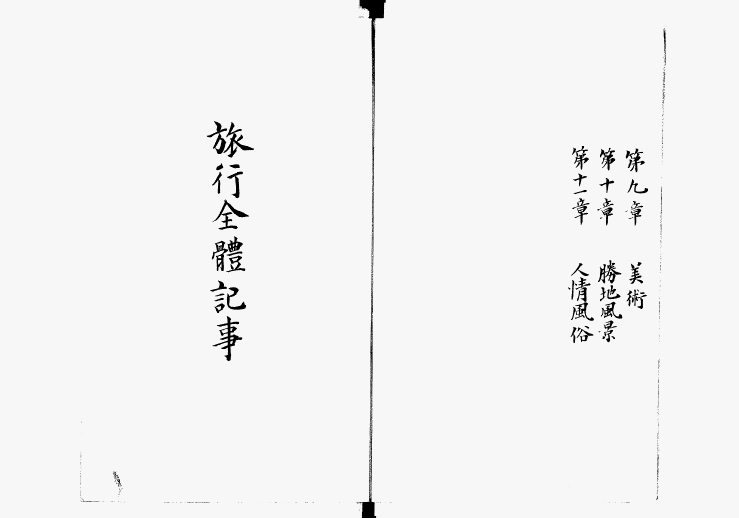 第九章 美術
第十章 勝地風景
第十一章 人情風俗
旅行全體記事